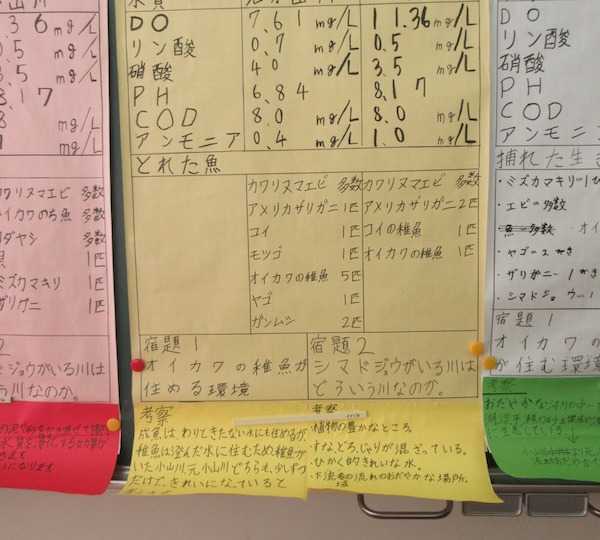 36 mg/L
0.5 mg/L
3.5 mg/L
8.17
8 mg/L
1 mg/L
カワリヌマエビ 多数
オイカワのち魚 多数
カダヤシ 多数
1匹
ミズカマキリ 1匹
ザリガニ 1匹
2
ドジョウがいる川は
う川なのか。
水質
DO 7.61 mg/L 11.36 mg/L
リン酸 0.7 mg/L 0.5 mg/L
硝酸 40 mg/L 3.5 mg/L
PH 6.84 8.17
COD 8.0 mg/L 8.0 mg/L
アンモニア 0.4 mg/L 1.0 mg/L
とれた魚
カワリヌマエビ 多数 カワリヌマエビ 多数
アメリカザリガニ 1匹 アメリカザリガニ 2匹
コイ 1匹 コイの稚魚 1匹
モツゴ 1匹 オイカワの稚魚 1匹
オイカワの稚魚 5匹
ヤゴ 1匹
ガンムシ 2匹
宿題1
オイカワの稚魚が
住める環境
宿題2
シマドジョウがいる川は
どういう川なのか。
考察
成魚は、わりときたない水にも住めるが、
稚魚は澄んだ水に住むため稚魚が
いた小山川、元小山川どちらも、少しずつ
だけど、きれいになっていると
考察
植物の豊かなところ。
すな、どろ、じゃりが混ざっている。
ひかく的きれいな水。
下流域の流れのおだやかな場所。
DO
リン酸
硝酸
PH
COD
アンモニ
捕れた生き
・ミズカマキリ
・エビ 多数
・ヤゴ
・ザリガニ
・シマドジョウ
宿題1
オイカワの
が住む環境
考察